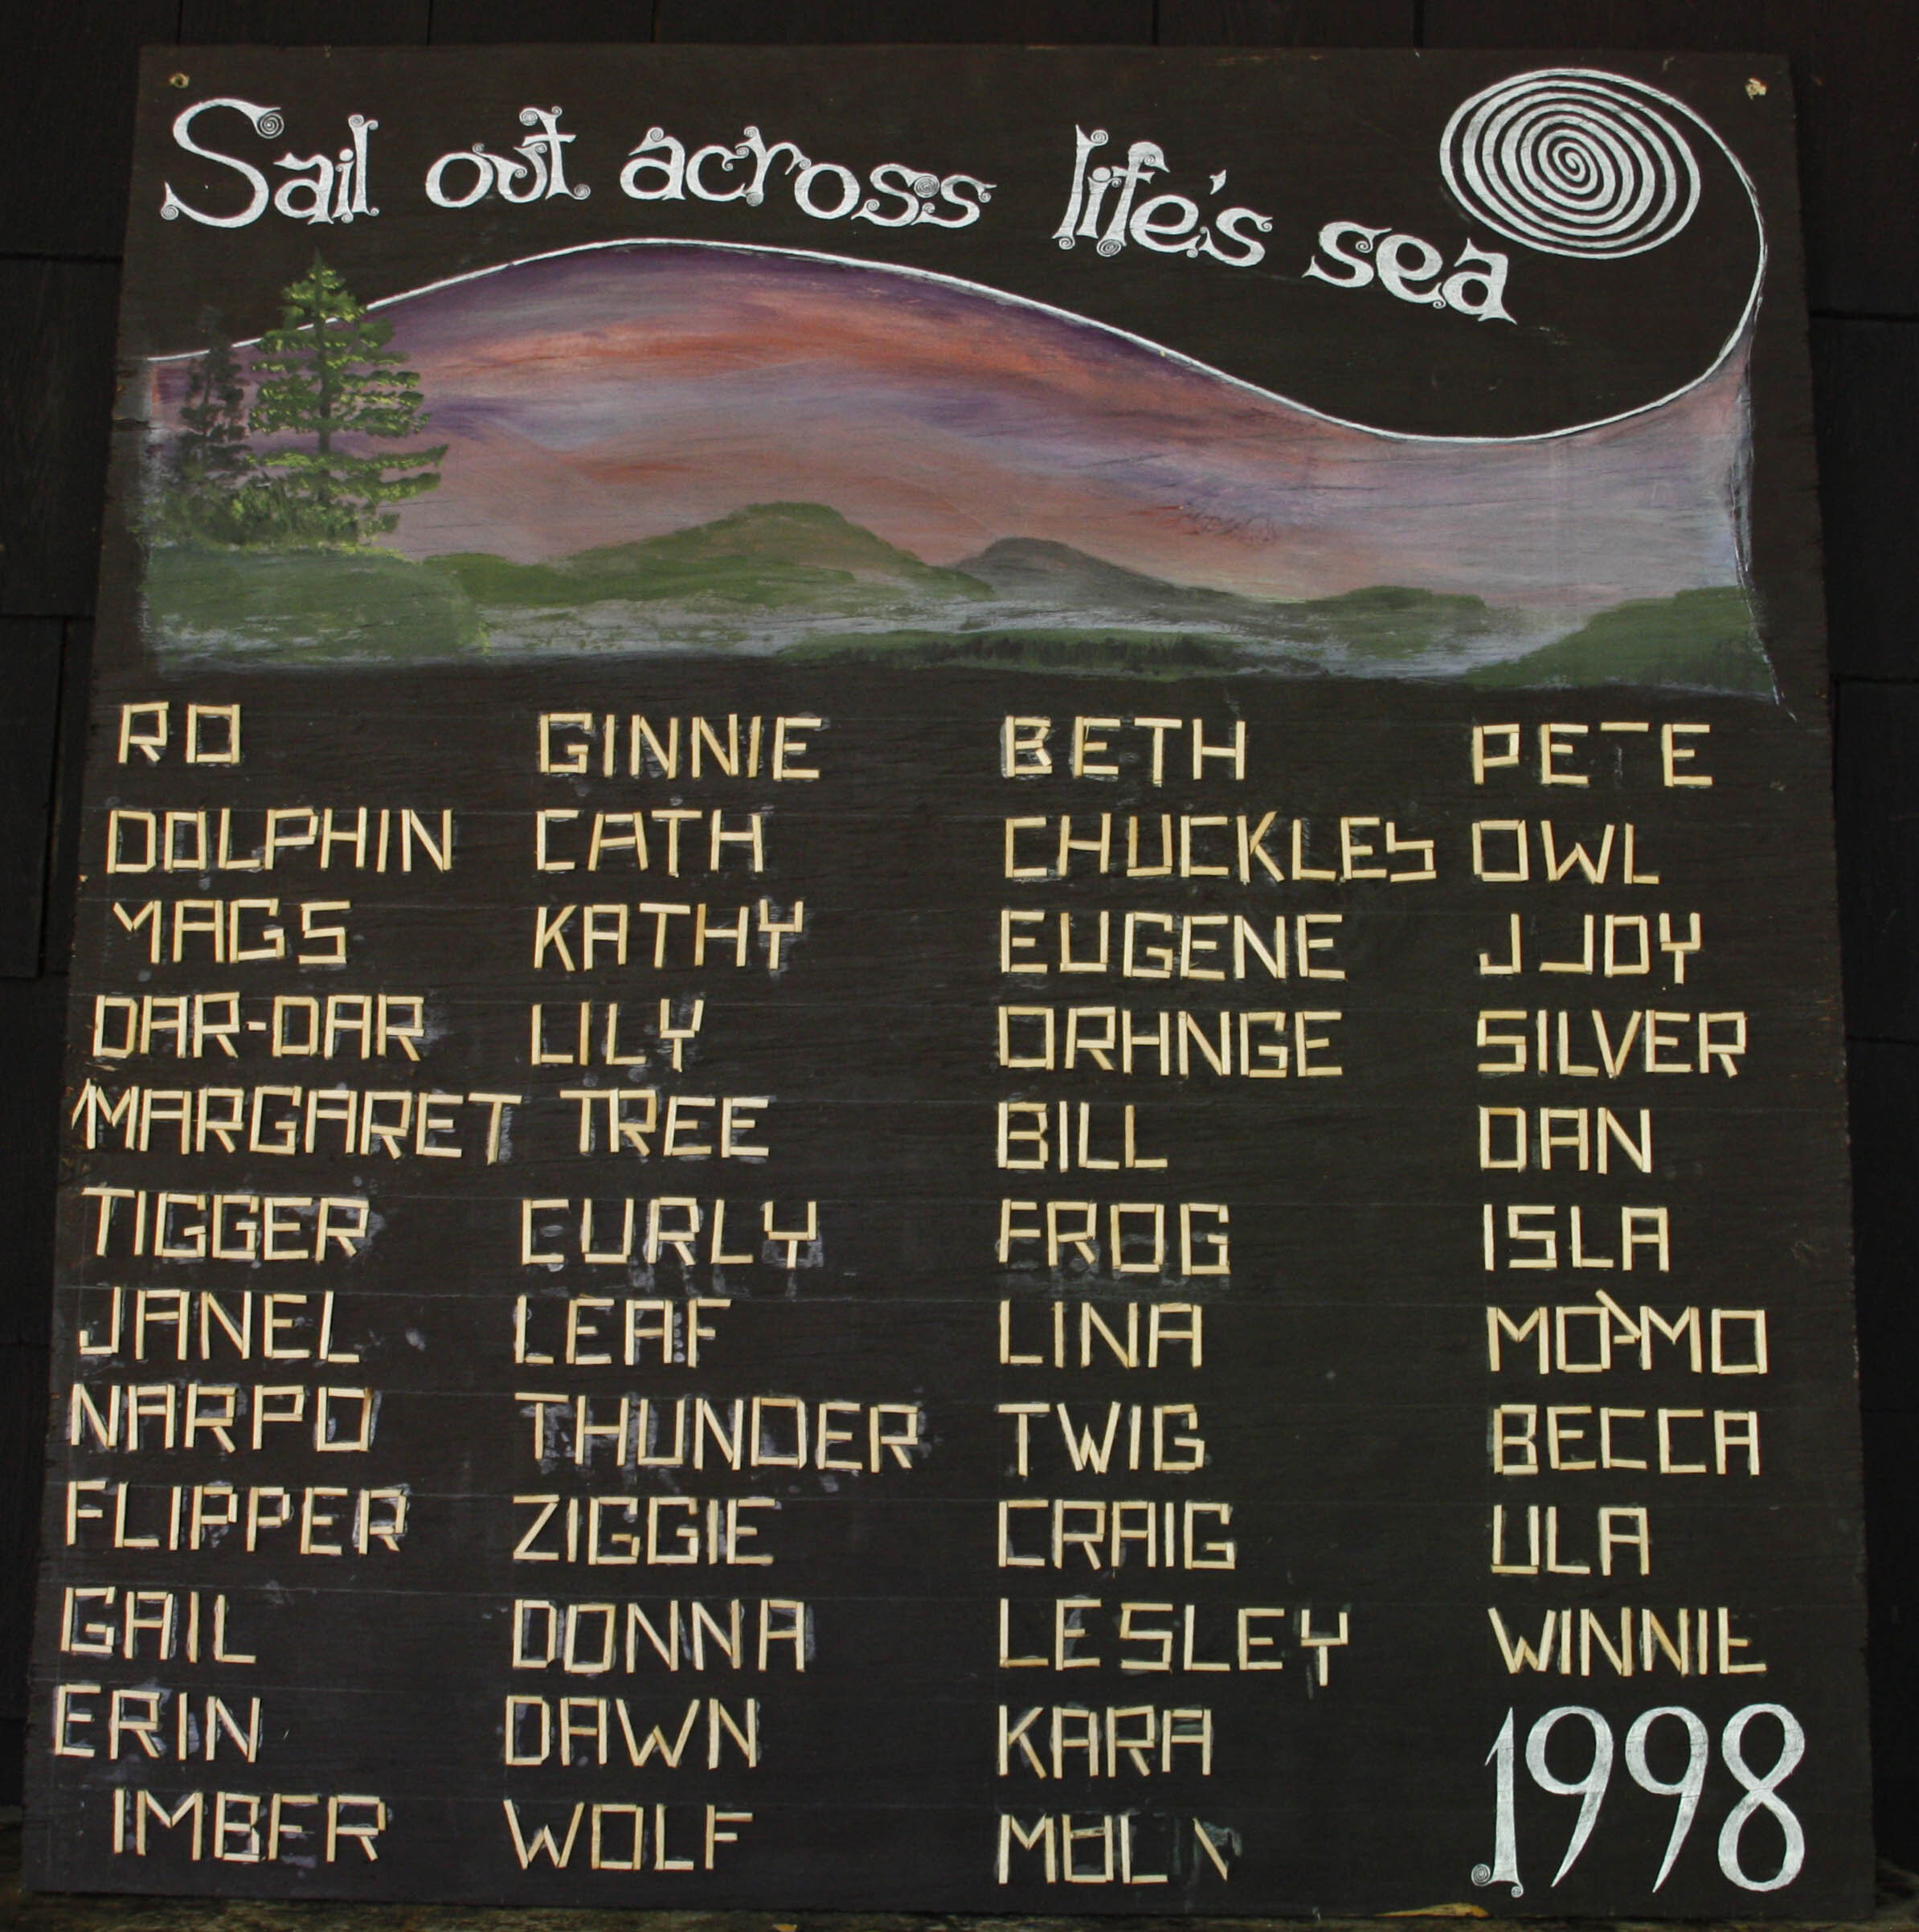 Sail out across life's sea
RO GINNIE BETH PETE
DOLPHIN CATH CHUCKLES OWL
MAGS KATHY EUGENE J JOY
DAR-DAR LILY ORANGE SILVER
MARGARET TREE BILL DAN
TIGGER CURLY FROG ISLA
JANEL LEAF LINA MO-MO
NARPO THUNDER TWIG BECCA
FLIPPER ZIGGIE CRAIG ULA
GAIL DONNA LESLEY WINNIE
ERIN DAWN KARA 1998
IMBER WOLF